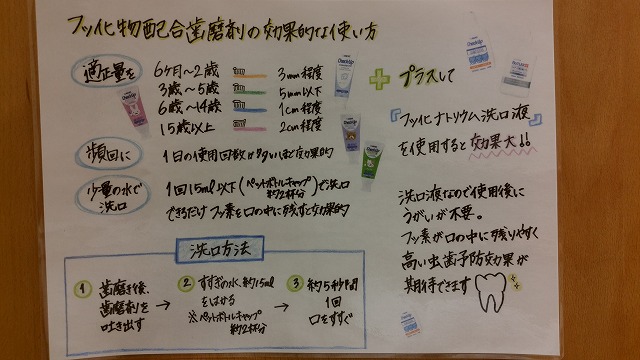 フッ化物配合歯磨剤の効果的な使い方
適正量を
6ヶ月～2歳 3mm程度
3歳～5歳 5mm以下
6歳～14歳 1cm程度
15歳以上 2cm程度
頻回に
1日の使用回数は多いほど効果的
少量の水で
洗口
1回15ml以下(ペットボトルキャップ約2杯分)で洗口
できるだけフッ素を口の中に残すと効果的
＋プラスして
『フッ化ナトリウム洗口液』
を使用すると効果大!!
洗口液なので使用後に
うがいが不要。
フッ素が口の中に残りやすく
高い虫歯予防効果が
期待できます
洗口方法
① 歯磨き後、
歯磨剤を
吐き出す
→
② すすぎの水、約15ml
をはかる
※ペットボトルキャップ
約2杯分
→
③ 約5秒間
1回
口をすすぐ